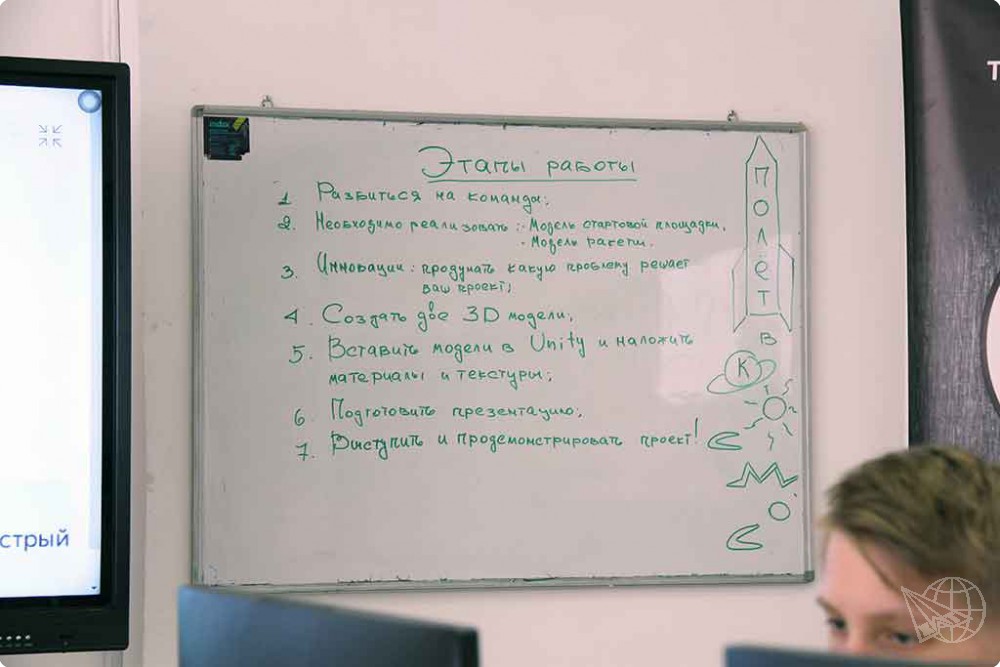 Этапы работы
1 Разбиться на команды;
2. Необходимо реализовать: - Модель стартовой площадки,
- Модель ракеты.
3. Инновации: продумать какую проблему решает
ваш проект;
4. Создать две 3D модели;
5. Вставить модели в Unity и наложить
материалы и текстуры;
6. Подготовить презентацию;
7. Выступить и продемонстрировать проект!
П
О
Л
Ё
Т
В
К
О
С
М
О
С
стрый
Т